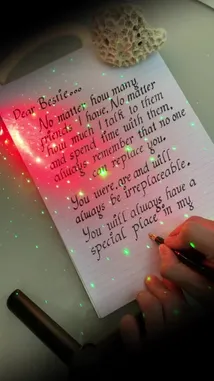 Dear Bestie...
No matter how many
friends I have. No matter
how much I talk to them
and spend time with them.
always remember that no one
can replace you.
You were, are and will
always be irreplaceable.
You will always have a
special place in my